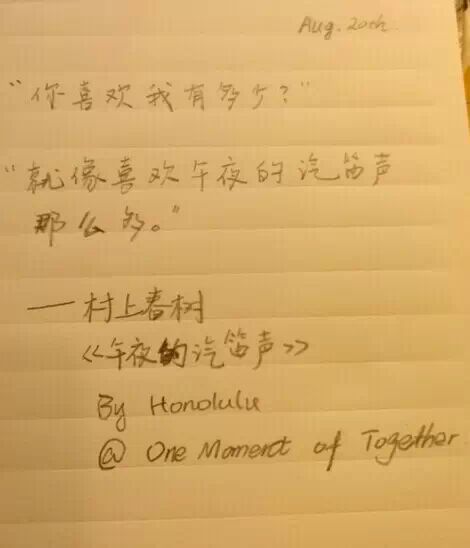 Aug. 20th
“你喜欢我有多少？”
“就像喜欢午夜的汽笛声
那么多。”
——村上春树
《午夜的汽笛声》
By Honolulu
@ One Moment of Together